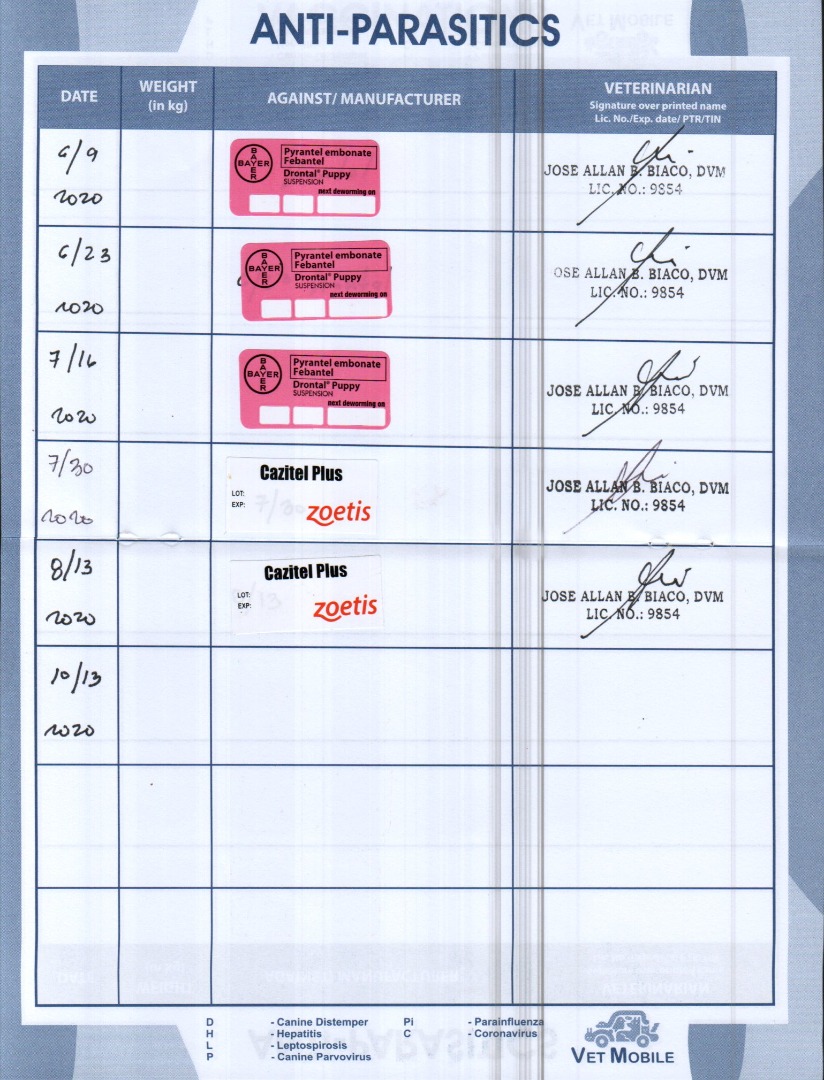 ANTI-PARASITICS
DATE
WEIGHT
(in kg)
AGAINST/ MANUFACTURER
VETERINARIAN
Signature over printed name
Lic. No./Exp. date/ PTR/TIN
6/9
2020
BAYER
BAYER
Pyrantel embonate
Febantel
Drontal® Puppy
SUSPENSION
next deworming on
JOSE ALLAN B. BIACO, DVM
LIC. NO.: 9854
6/23
2020
BAYER
BAYER
Pyrantel embonate
Febantel
Drontal® Puppy
SUSPENSION
next deworming on
OSE ALLAN B. BIACO, DVM
LIC. NO.: 9854
7/16
2020
BAYER
BAYER
Pyrantel embonate
Febantel
Drontal® Puppy
SUSPENSION
next deworming on
JOSE ALLAN B. BIACO, DVM
LIC. NO.: 9854
7/30
2020
Cazitel Plus
LOT:
EXP:
7/30
zoetis
JOSE ALLAN B. BIACO, DVM
LIC. NO.: 9854
8/13
2020
Cazitel Plus
LOT:
EXP:
zoetis
JOSE ALLAN B. BIACO, DVM
LIC. NO.: 9854
10/13
2020
D - Canine Distemper Pi - Parainfluenza
H - Hepatitis C - Coronavirus
L - Leptospirosis
P - Canine Parvovirus
VET MOBILE